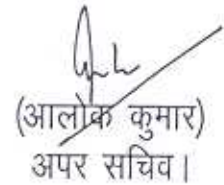 (आलोक कुमार)
अपर सचिव।